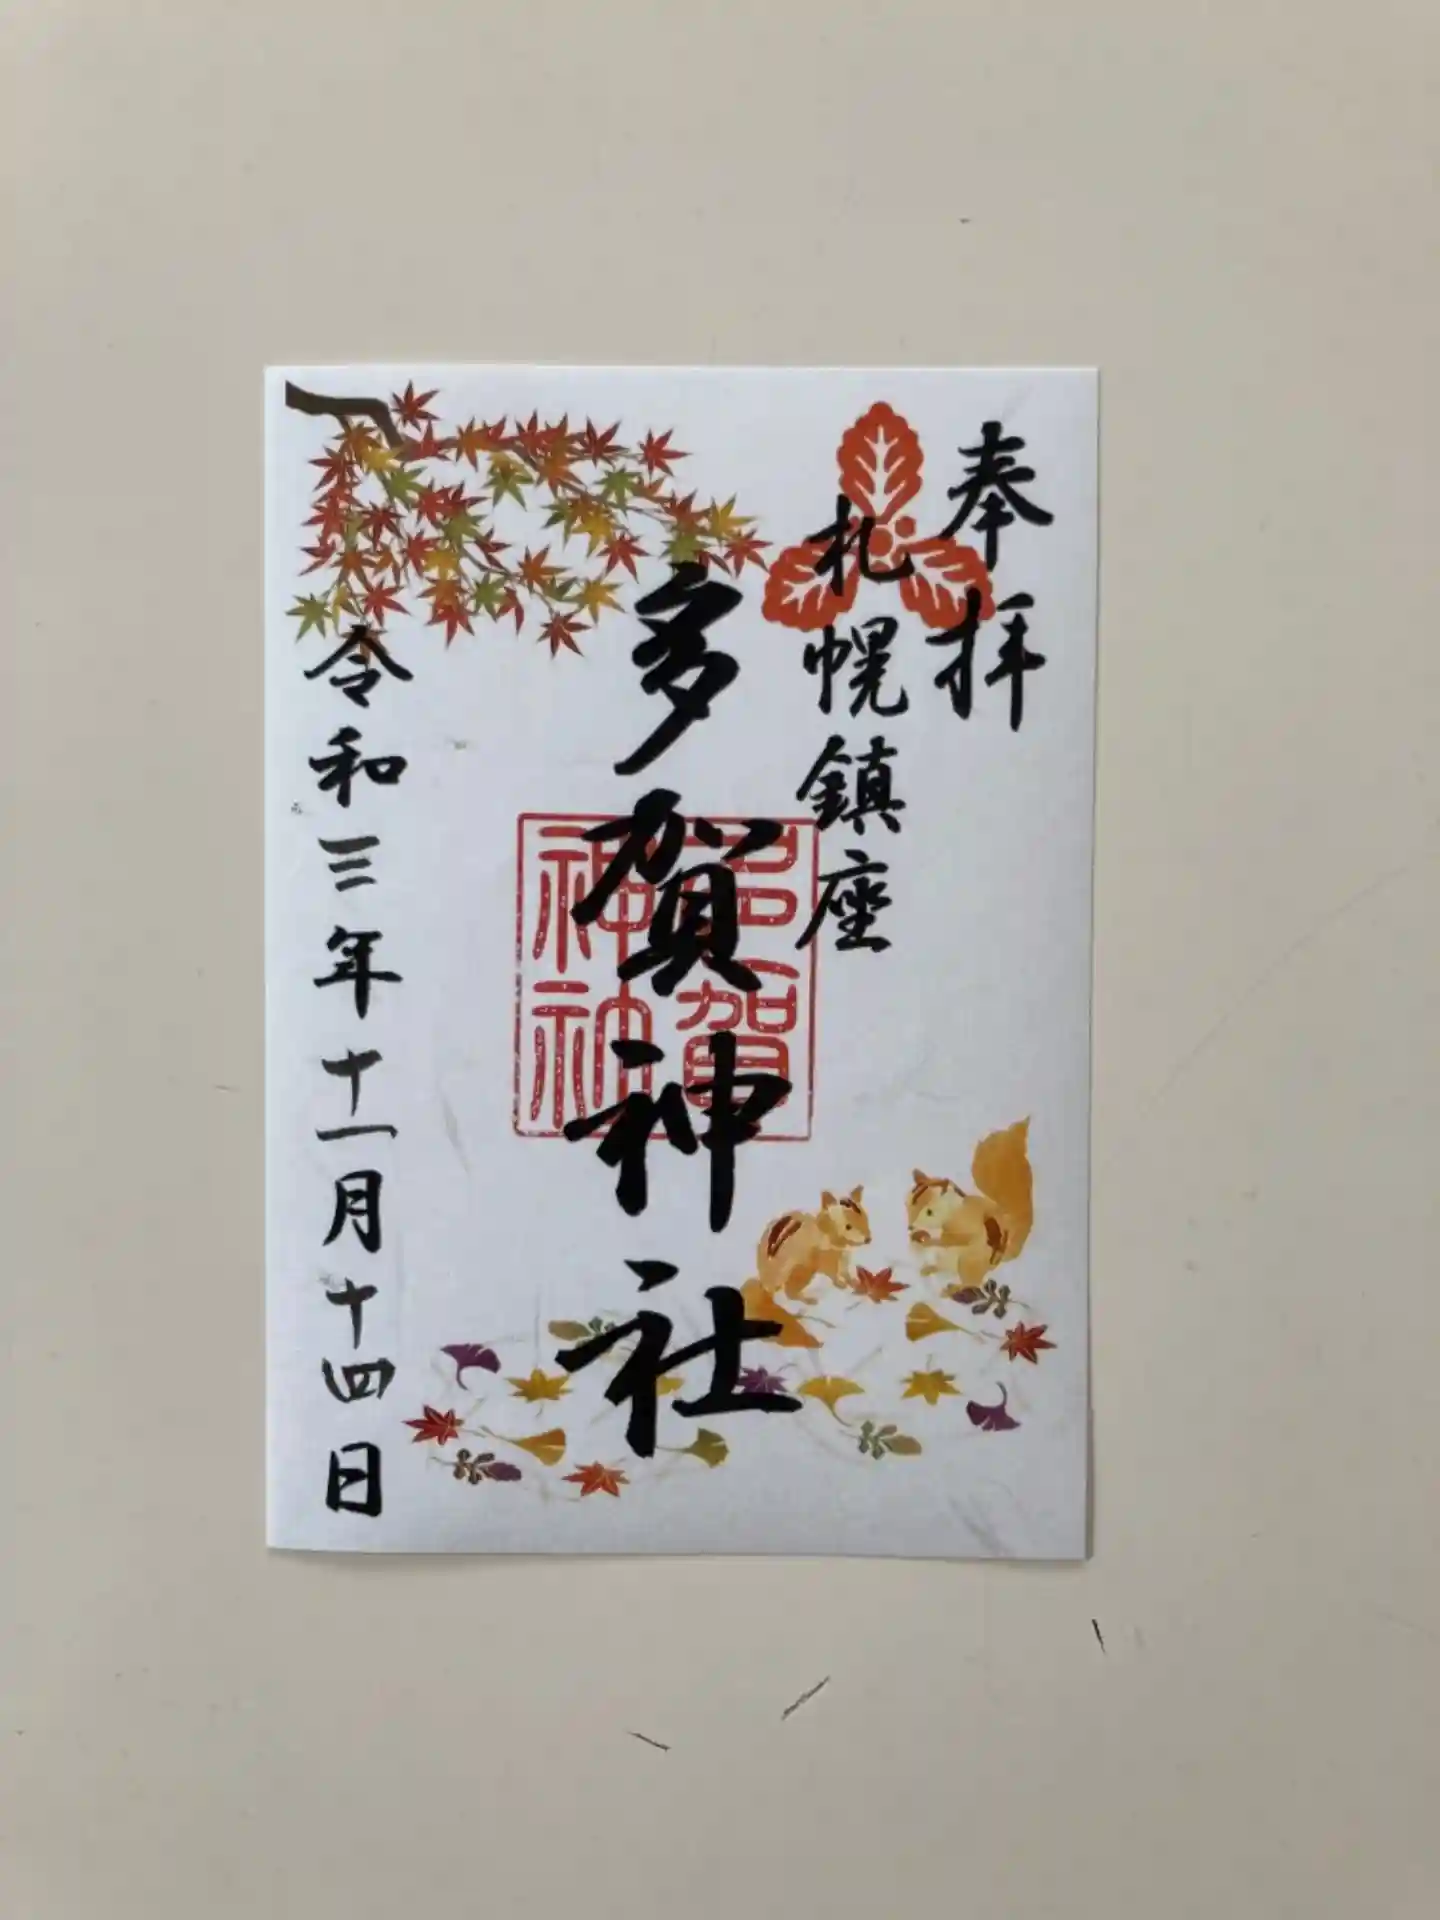 奉拝
札幌鎮座
多賀神社
令和三年十一月十四日
多賀
神社